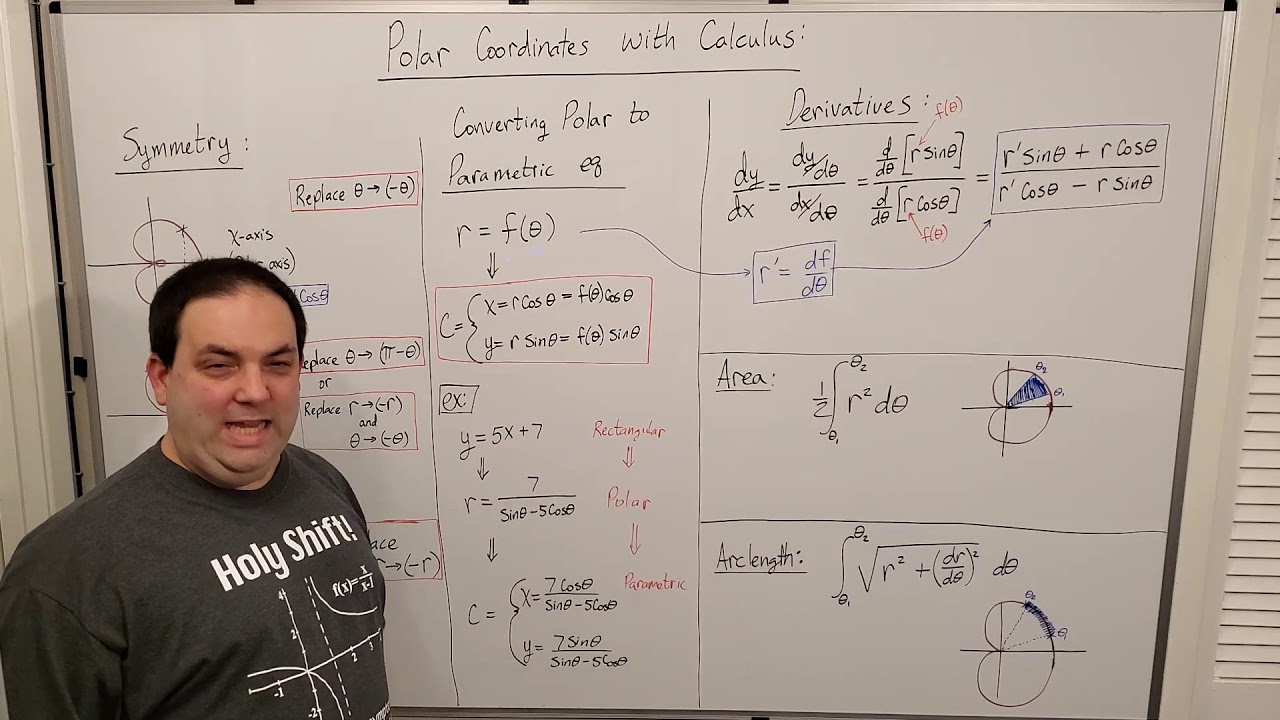 Polar Coordinates with Calculus:
Symmetry:
Replace θ → (-θ)
x-axis
axis)
Cosθ
eplace θ → (π-θ)
or
Replace r → (-r)
and
θ → (-θ)
lace
r → (-r)
Converting Polar to
Parametric eq
r = f(θ)
⇓
C = { x = r Cosθ = f(θ) Cosθ
y = r sinθ = f(θ) sinθ
ex:
y = 5x + 7
Rectangular
⇓
r = 7 / (Sinθ - 5Cosθ)
Polar
⇓
Parametric
C = { x = 7Cosθ / (Sinθ - 5Cosθ)
y = 7Sinθ / (Sinθ - 5Cosθ)
Derivatives:
f(θ)
dy/dx = (dy/dθ) / (dx/dθ) = (d/dθ [r sinθ]) / (d/dθ [r Cosθ]) = (r' sinθ + r Cosθ) / (r' Cosθ - r Sinθ)
f(θ)
r' = df/dθ
Area:
1/2 ∫ θ₁ θ₂ r² dθ
θ₂
θ₁
Arclength:
∫ θ₁ θ₂ √(r² + (dr/dθ)²) dθ
θ₂
θ₁
Holy Shift!
f(x) = x/(x-1)
4
2
-1
2
3
-2